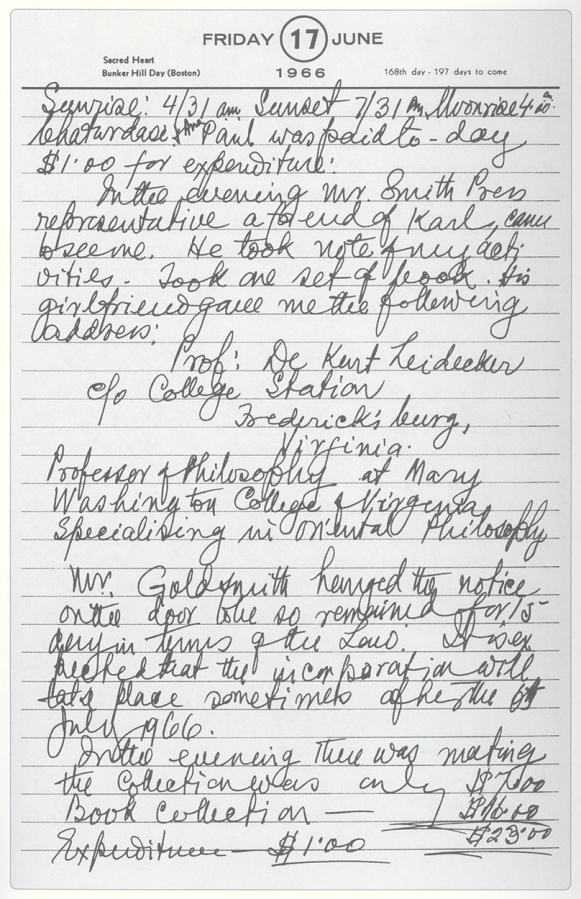 FRIDAY 17 JUNE
Sacred Heart
Bunker Hill Day (Boston)
1966
168th day - 197 days to come
Sunrise: 4/31 am Sunset 7/31 Pm, Moonrise 4
Chaturdasi, Paul was paid to-day
$1.00 for expenditure.
In the evening Mr. Smith Press
representative a friend of Karl, came
to see me. He took note of my acti
vities. Took one set of book. His
girlfriend gave me the following
address:
Prof: Dr Kurt Leidecker
c/o College Station
Frederick's burg,
Virginia.
Professor of Philosophy at Mary
Washington College of Virginia
Specialising in Oriental Philosophy
Mr. Goldsmith hanged the notice
on the door to be so remained for 15
days in terms of the Law. It is ex
pected that the incorporation will
take place sometimes after the 6th
July 1966.
In the evening There was meeting
the Collection was only $7.00
Book Collection — $16.00
$23.00
Expenditure — $1.00